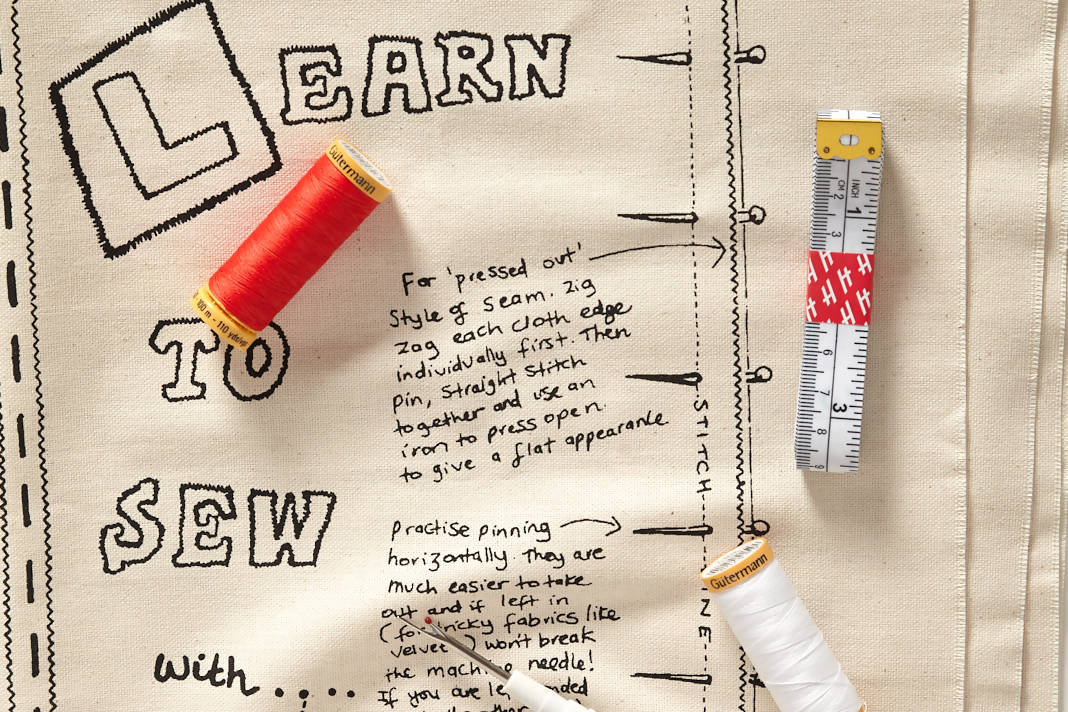 LEARN
TO
SEW
with.....
For 'pressed out'
style of seam. Zig
zag each cloth edge
individually first. Then
pin, straight stitch
together and use an
iron to press open.
to give a flat appearance
practise pinning
horizontally. They are
much easier to take
out and if left in
(for tricky fabrics like
velvet) won't break
the machine needle!
If you are
STITCH
Gütermann
100 m - 110 yds
Gütermann
INCH
CM
1
2
3
3
6
7
8
9
H H H H